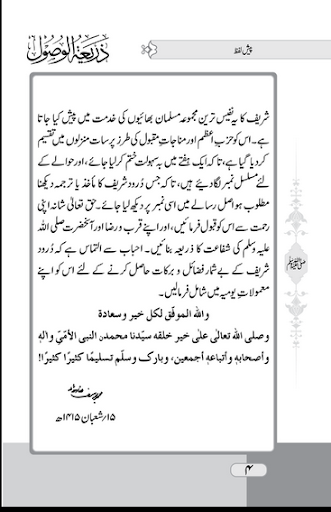 پیش لفظ
ذریعۃ الوصول
شریف کا یہ نفیس ترین مجموعہ مسلمان بھائیوں کی خدمت میں پیش کیا جاتا
ہے۔ اس کو حزب اعظم اور مناجات مقبول کی طرز پر سات منزلوں میں تقسیم
کر دیا گیا ہے، تاکہ ایک ہفتے میں بہ سہولت ختم کر لیا جائے، اور حوالے کے
لئے مسلسل نمبر لگا دیئے ہیں، تاکہ جس دُرود شریف کا مأخذ یا ترجمہ دیکھنا
مطلوب ہو اصل رسالے میں اسی نمبر پر دیکھ لیا جائے۔ حق تعالیٰ شانہٗ اپنی
رحمت سے اس کو قبول فرمائیں، اور اپنے قرب و رضا اور آنحضرت صلی اللہ
علیہ وسلم کی شفاعت کا ذریعہ بنائیں۔ احباب سے التماس ہے کہ دُرود
شریف کے بے شمار فضائل و برکات حاصل کرنے کے لئے اس کو اپنے
معمولاتِ یومیہ میں شامل فرمالیں۔
والله الموفق لكل خير وسعادة
وصلى الله تعالى على خير خلقه سيّدنا محمدن النبى الأمّىّ واٰلهٖ
وأصحابهٖ وأتباعهٖ أجمعين، وبارك وسلّم تسليمًا كثيرًا كثيرًا!
۱۵؍شعبان ۱۴۱۵ھ
ﷺ
۴